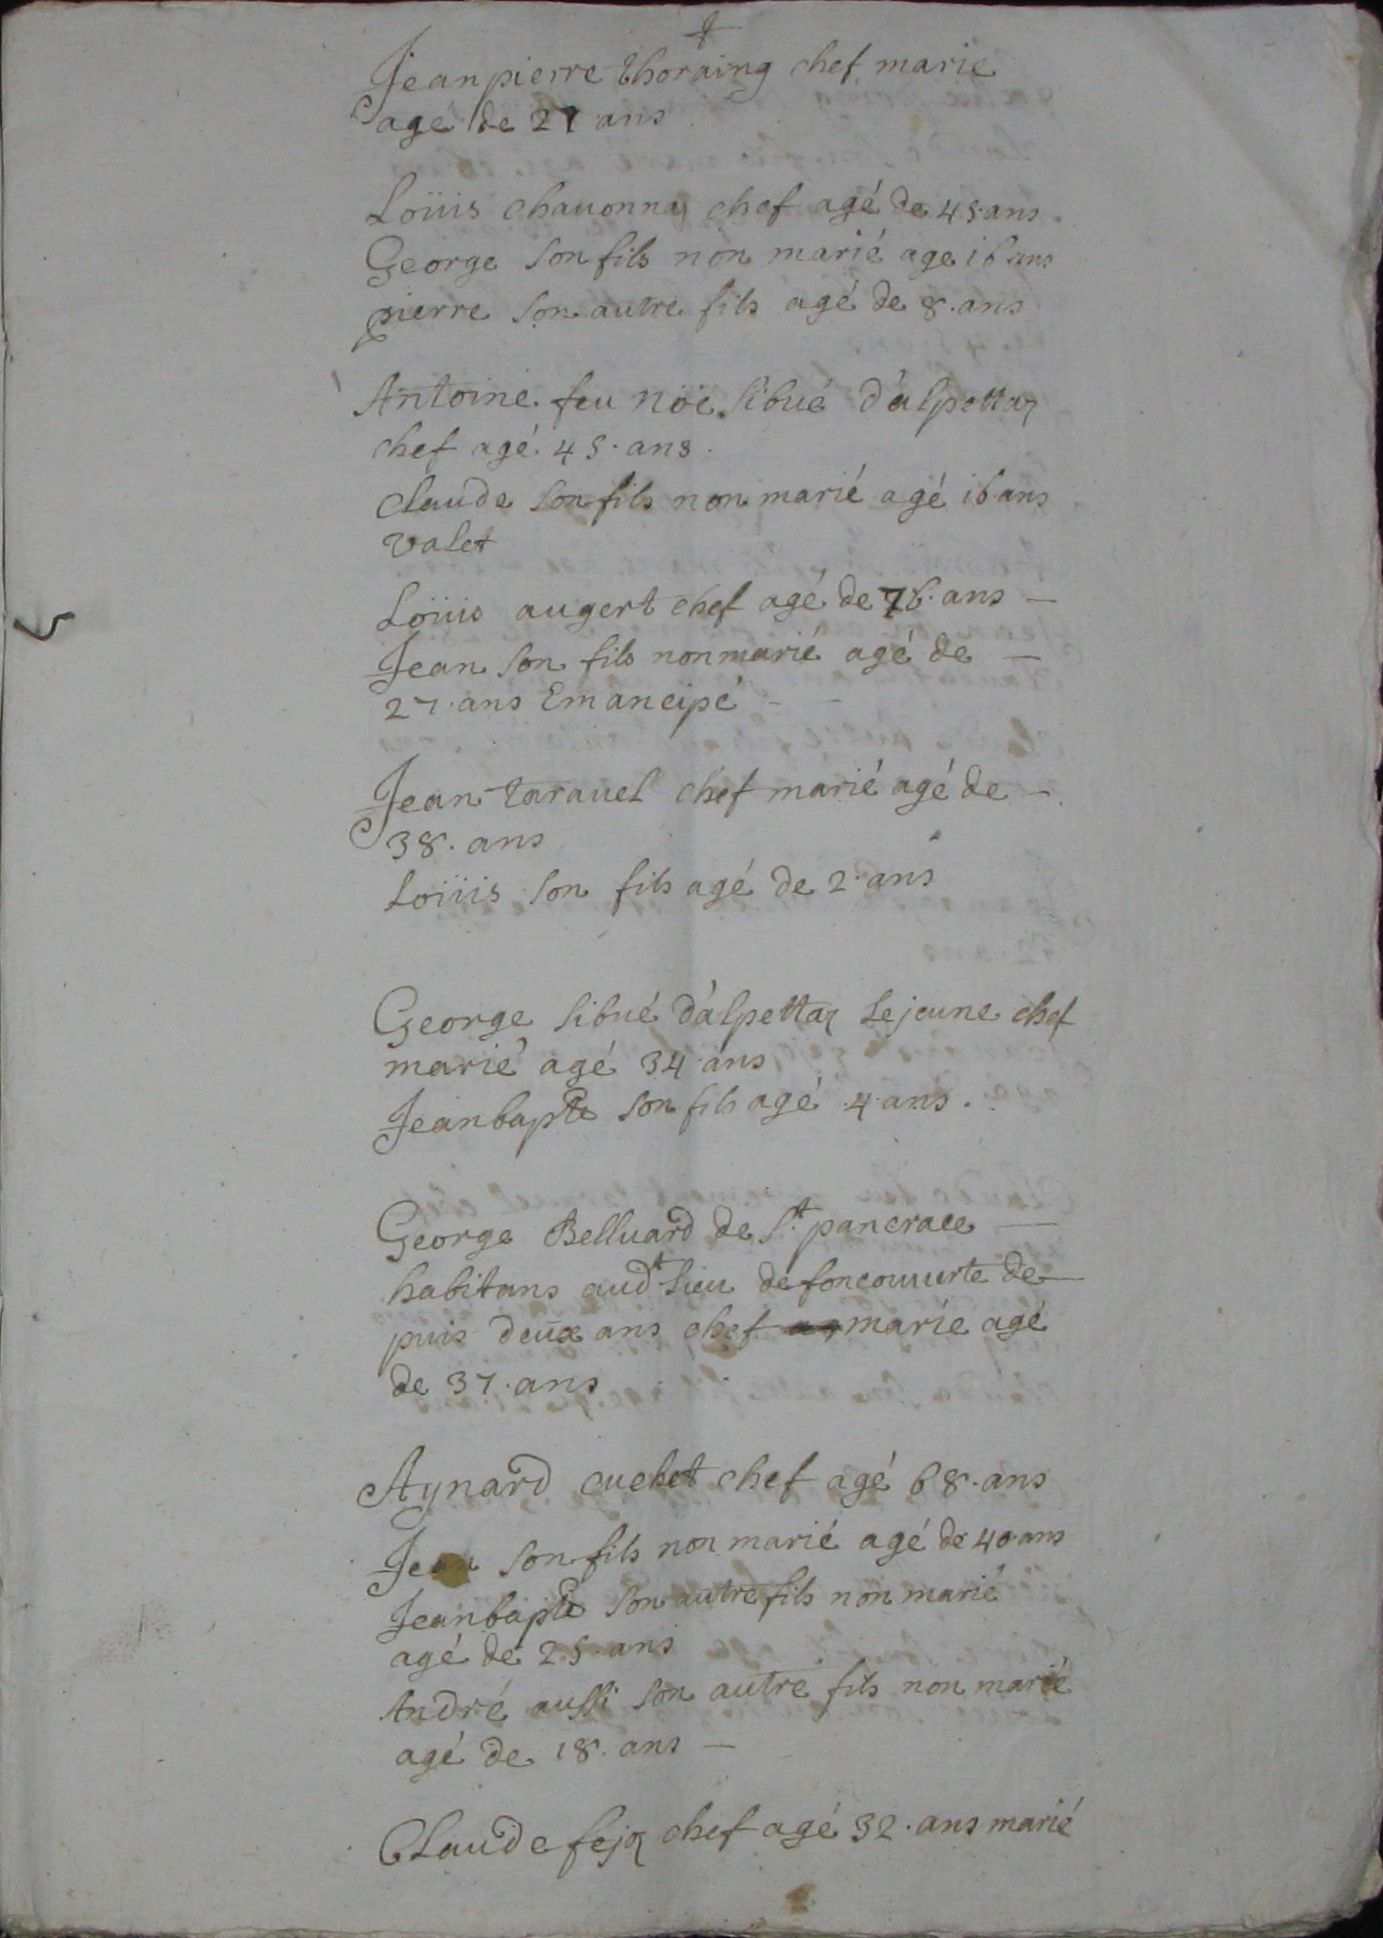 Jean pierre thoraing chef marié
agé de 27 ans
Loüis chauonnaz chef agé de 45 ans
George son fils non marié agé 16 ans
pierre son autre fils agé de 8. ans
Antoine feu nöe sibué d'alpettaz
chef agé 45. ans.
Claude son fils non marié agé 16 ans
valet
Loüis augert chef agé de 76. ans —
Jean son fils non marié agé de —
27. ans Emancipé -
Jean tarauel chef marié agé de —
38. ans
Loüis son fils agé de 2. ans
George sibué d'alpettaz Le jeune chef
marié agé 34 ans
Jean bapte son fils agé 4. ans.
George Belluard de St. pancrace —
habitans audt Lieu de foncouuerte de—
puis deux ans chef marié agé
de 37. ans
Aynard cuchet chef agé 68. ans
Jean son fils non marié agé de 40 ans
Jean bapte son autre fils non marié
agé de 25. ans
André aussi son autre fils non marié
agé de 18. ans —
Claude fejoz chef agé 32. ans marié